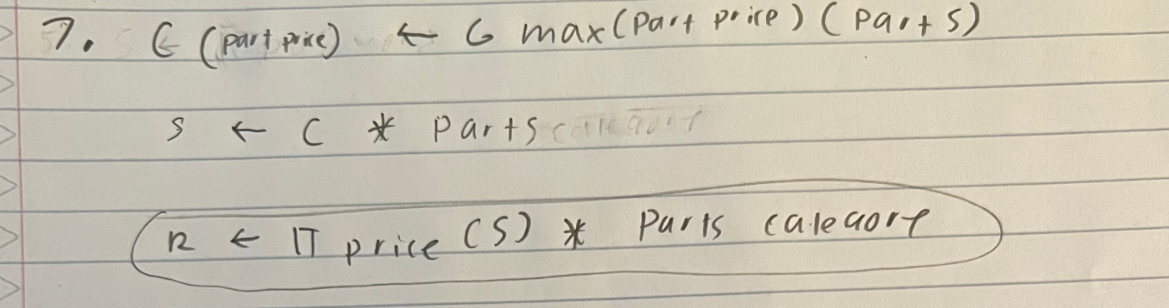 7. C (part price) ← G max(Part price) (Parts)
S ← C * Parts
R ← π price (S) * Parts category